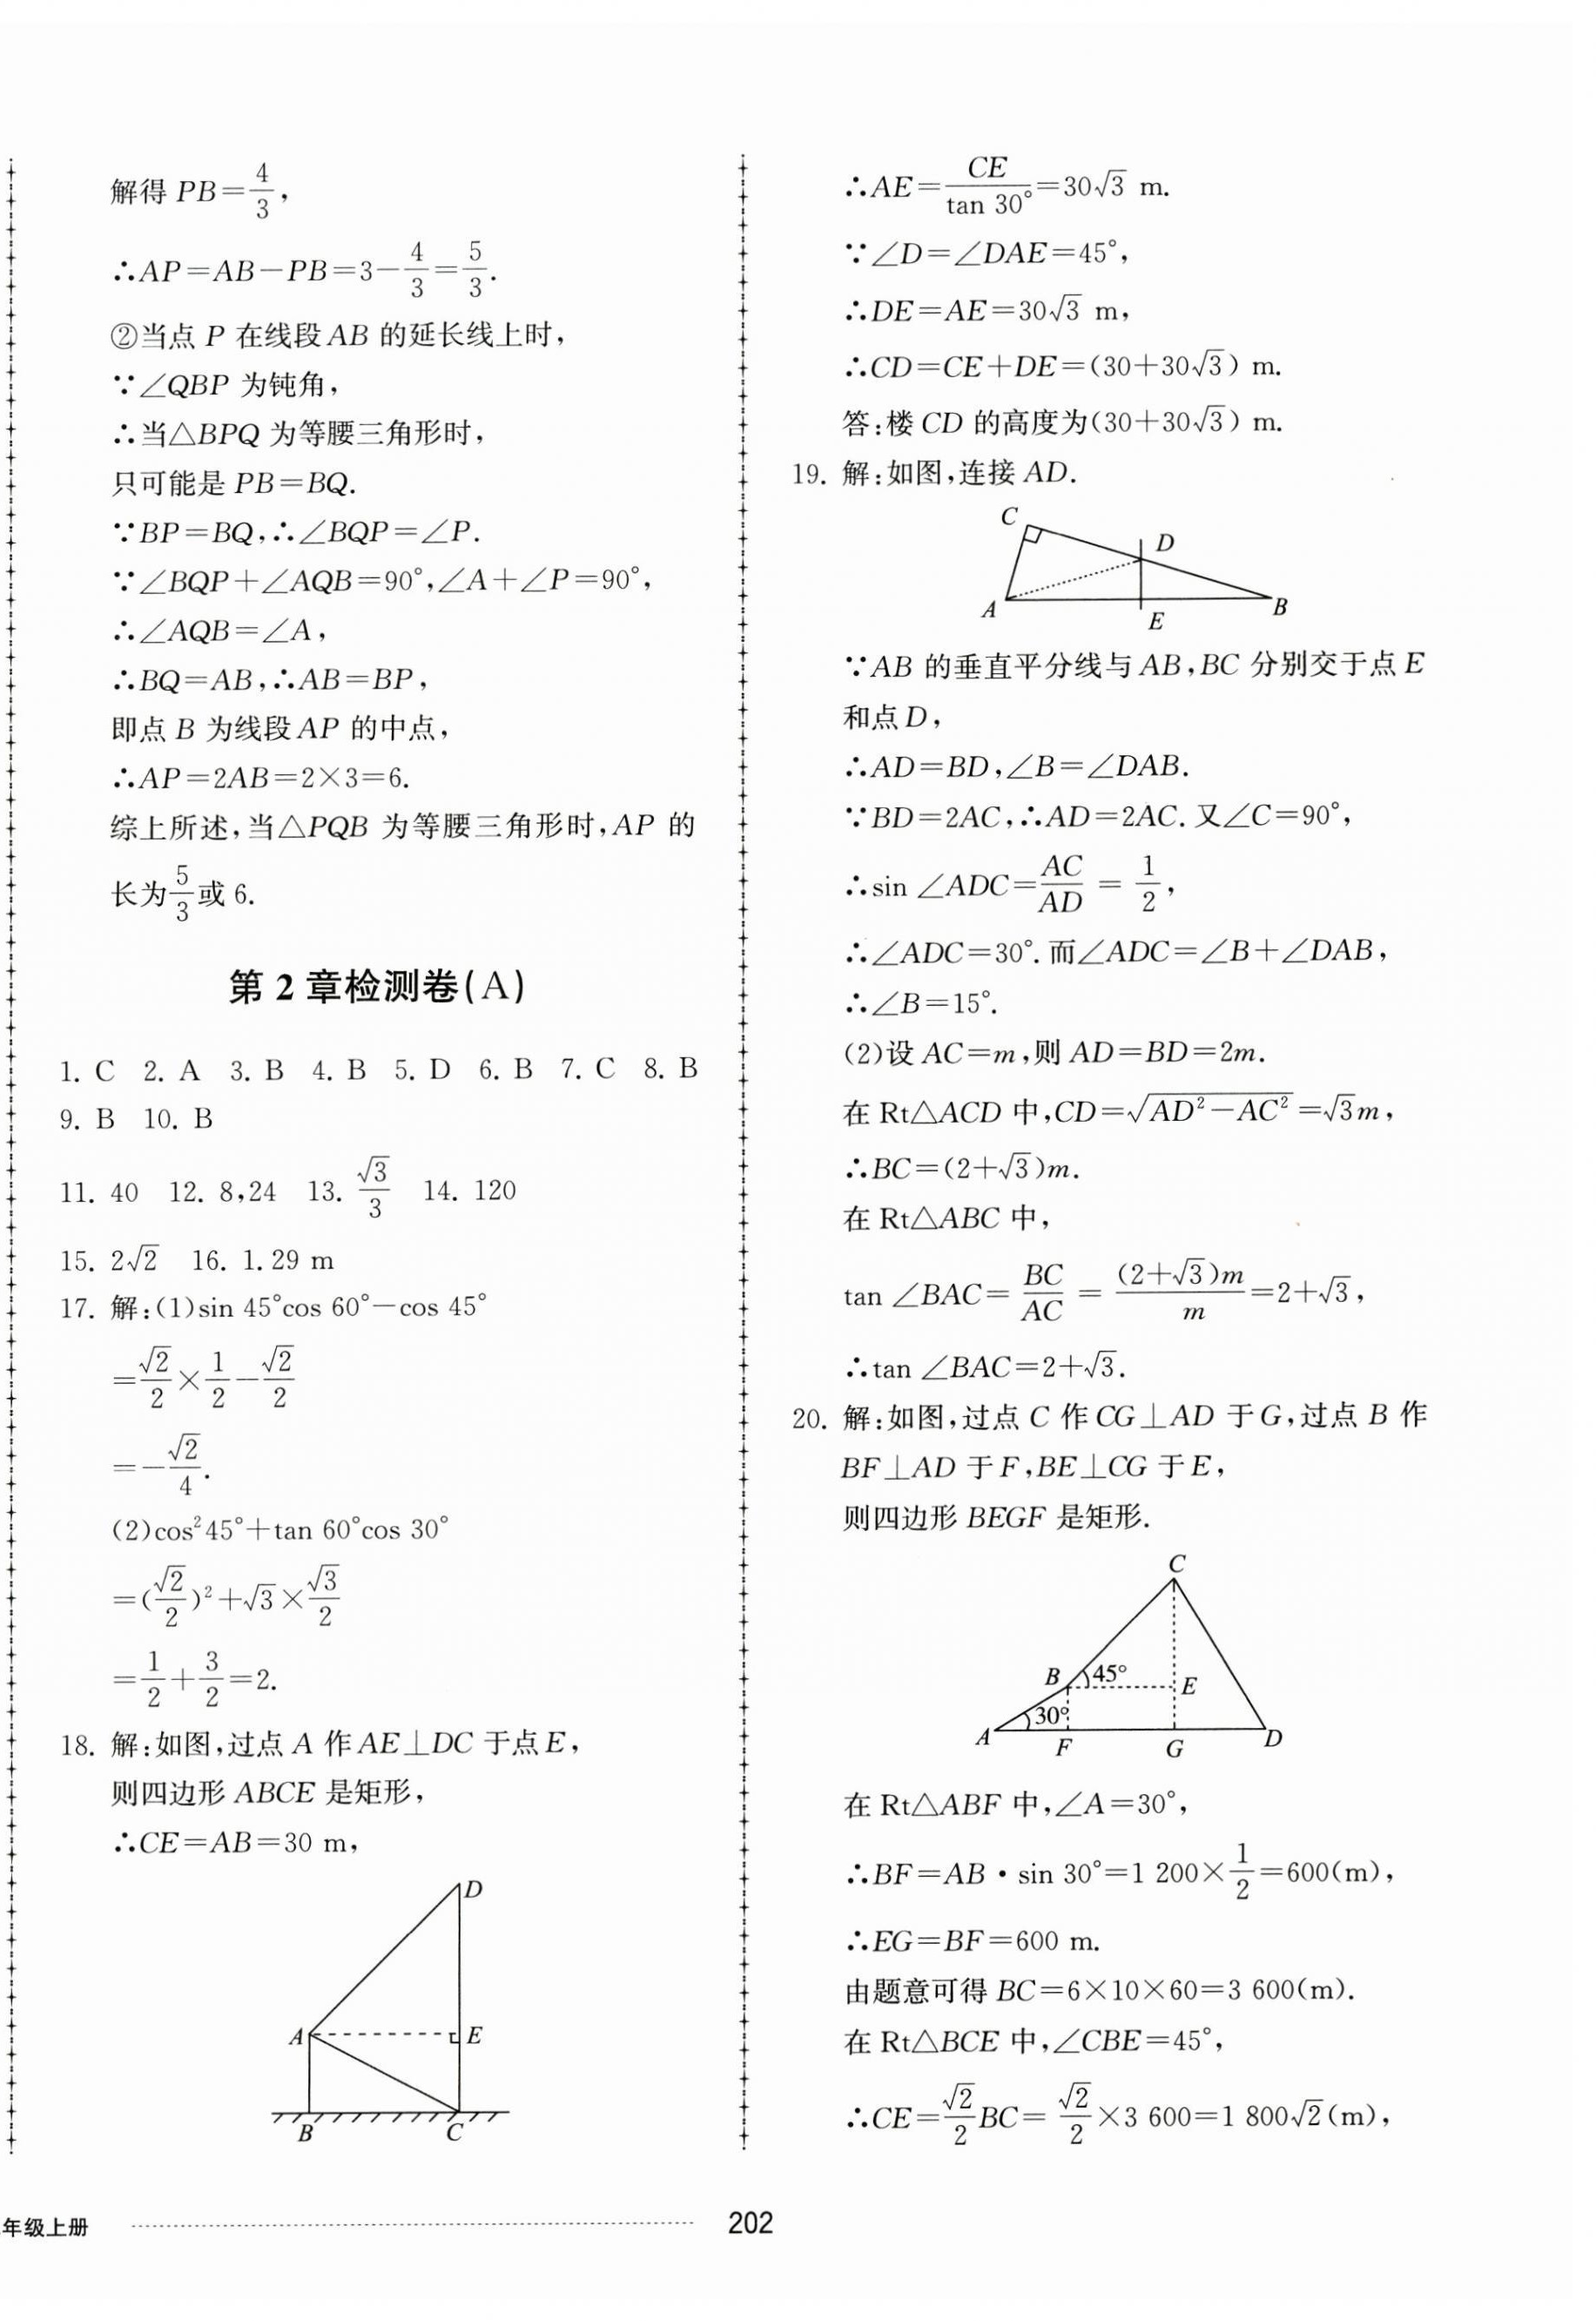 解得 PB=4/3,
∴AP=AB-PB=3-4/3=5/3.
②当点 P 在线段 AB 的延长线上时,
∵∠QBP 为钝角,
∴当△BPQ 为等腰三角形时,
只可能是 PB=BQ.
∵BP=BQ,∴∠BQP=∠P.
∵∠BQP+∠AQB=90°,∠A+∠P=90°,
∴∠AQB=∠A,
∴BQ=AB,∴AB=BP,
即点 B 为线段 AP 的中点,
∴AP=2AB=2×3=6.
综上所述,当△PQB 为等腰三角形时,AP 的
长为5/3或 6.
第 2 章检测卷(A)
1. C 2. A 3. B 4. B 5. D 6. B 7. C 8. B
9. B 10. B
11. 40 12. 8,24 13. √3/3 14. 120
15. 2√2 16. 1.29 m
17. 解:(1)sin 45°cos 60°-cos 45°
=√2/2×1/2-√2/2
=-√2/4.
(2)cos²45°+tan 60°cos 30°
=(√2/2)²+√3×√3/2
=1/2+3/2=2.
18. 解:如图,过点 A 作 AE⊥DC 于点 E,
则四边形 ABCE 是矩形,
∴CE=AB=30 m,
D
A E
B C
∴AE=CE/tan 30°=30√3 m.
∵∠D=∠DAE=45°,
∴DE=AE=30√3 m,
∴CD=CE+DE=(30+30√3) m.
答:楼 CD 的高度为(30+30√3) m.
19. 解:如图,连接 AD.
C
D
A E B
∵AB 的垂直平分线与 AB,BC 分别交于点 E
和点 D,
∴AD=BD,∠B=∠DAB.
∵BD=2AC,∴AD=2AC. 又∠C=90°,
∴sin ∠ADC=AC/AD=1/2,
∴∠ADC=30°. 而∠ADC=∠B+∠DAB,
∴∠B=15°.
(2)设 AC=m,则 AD=BD=2m.
在 Rt△ACD 中,CD=√(AD²-AC²)=√3m,
∴BC=(2+√3)m.
在 Rt△ABC 中,
tan ∠BAC=BC/AC=(2+√3)m/m=2+√3,
∴tan ∠BAC=2+√3.
20. 解:如图,过点 C 作 CG⊥AD 于 G,过点 B 作
BF⊥AD 于 F,BE⊥CG 于 E,
则四边形 BEGF 是矩形.
C
B 45° E
30°
A F G D
在 Rt△ABF 中,∠A=30°,
∴BF=AB·sin 30°=1 200×1/2=600(m),
∴EG=BF=600 m.
由题意可得 BC=6×10×60=3 600(m).
在 Rt△BCE 中,∠CBE=45°,
∴CE=√2/2BC=√2/2×3 600=1 800√2(m),
年级上册
202